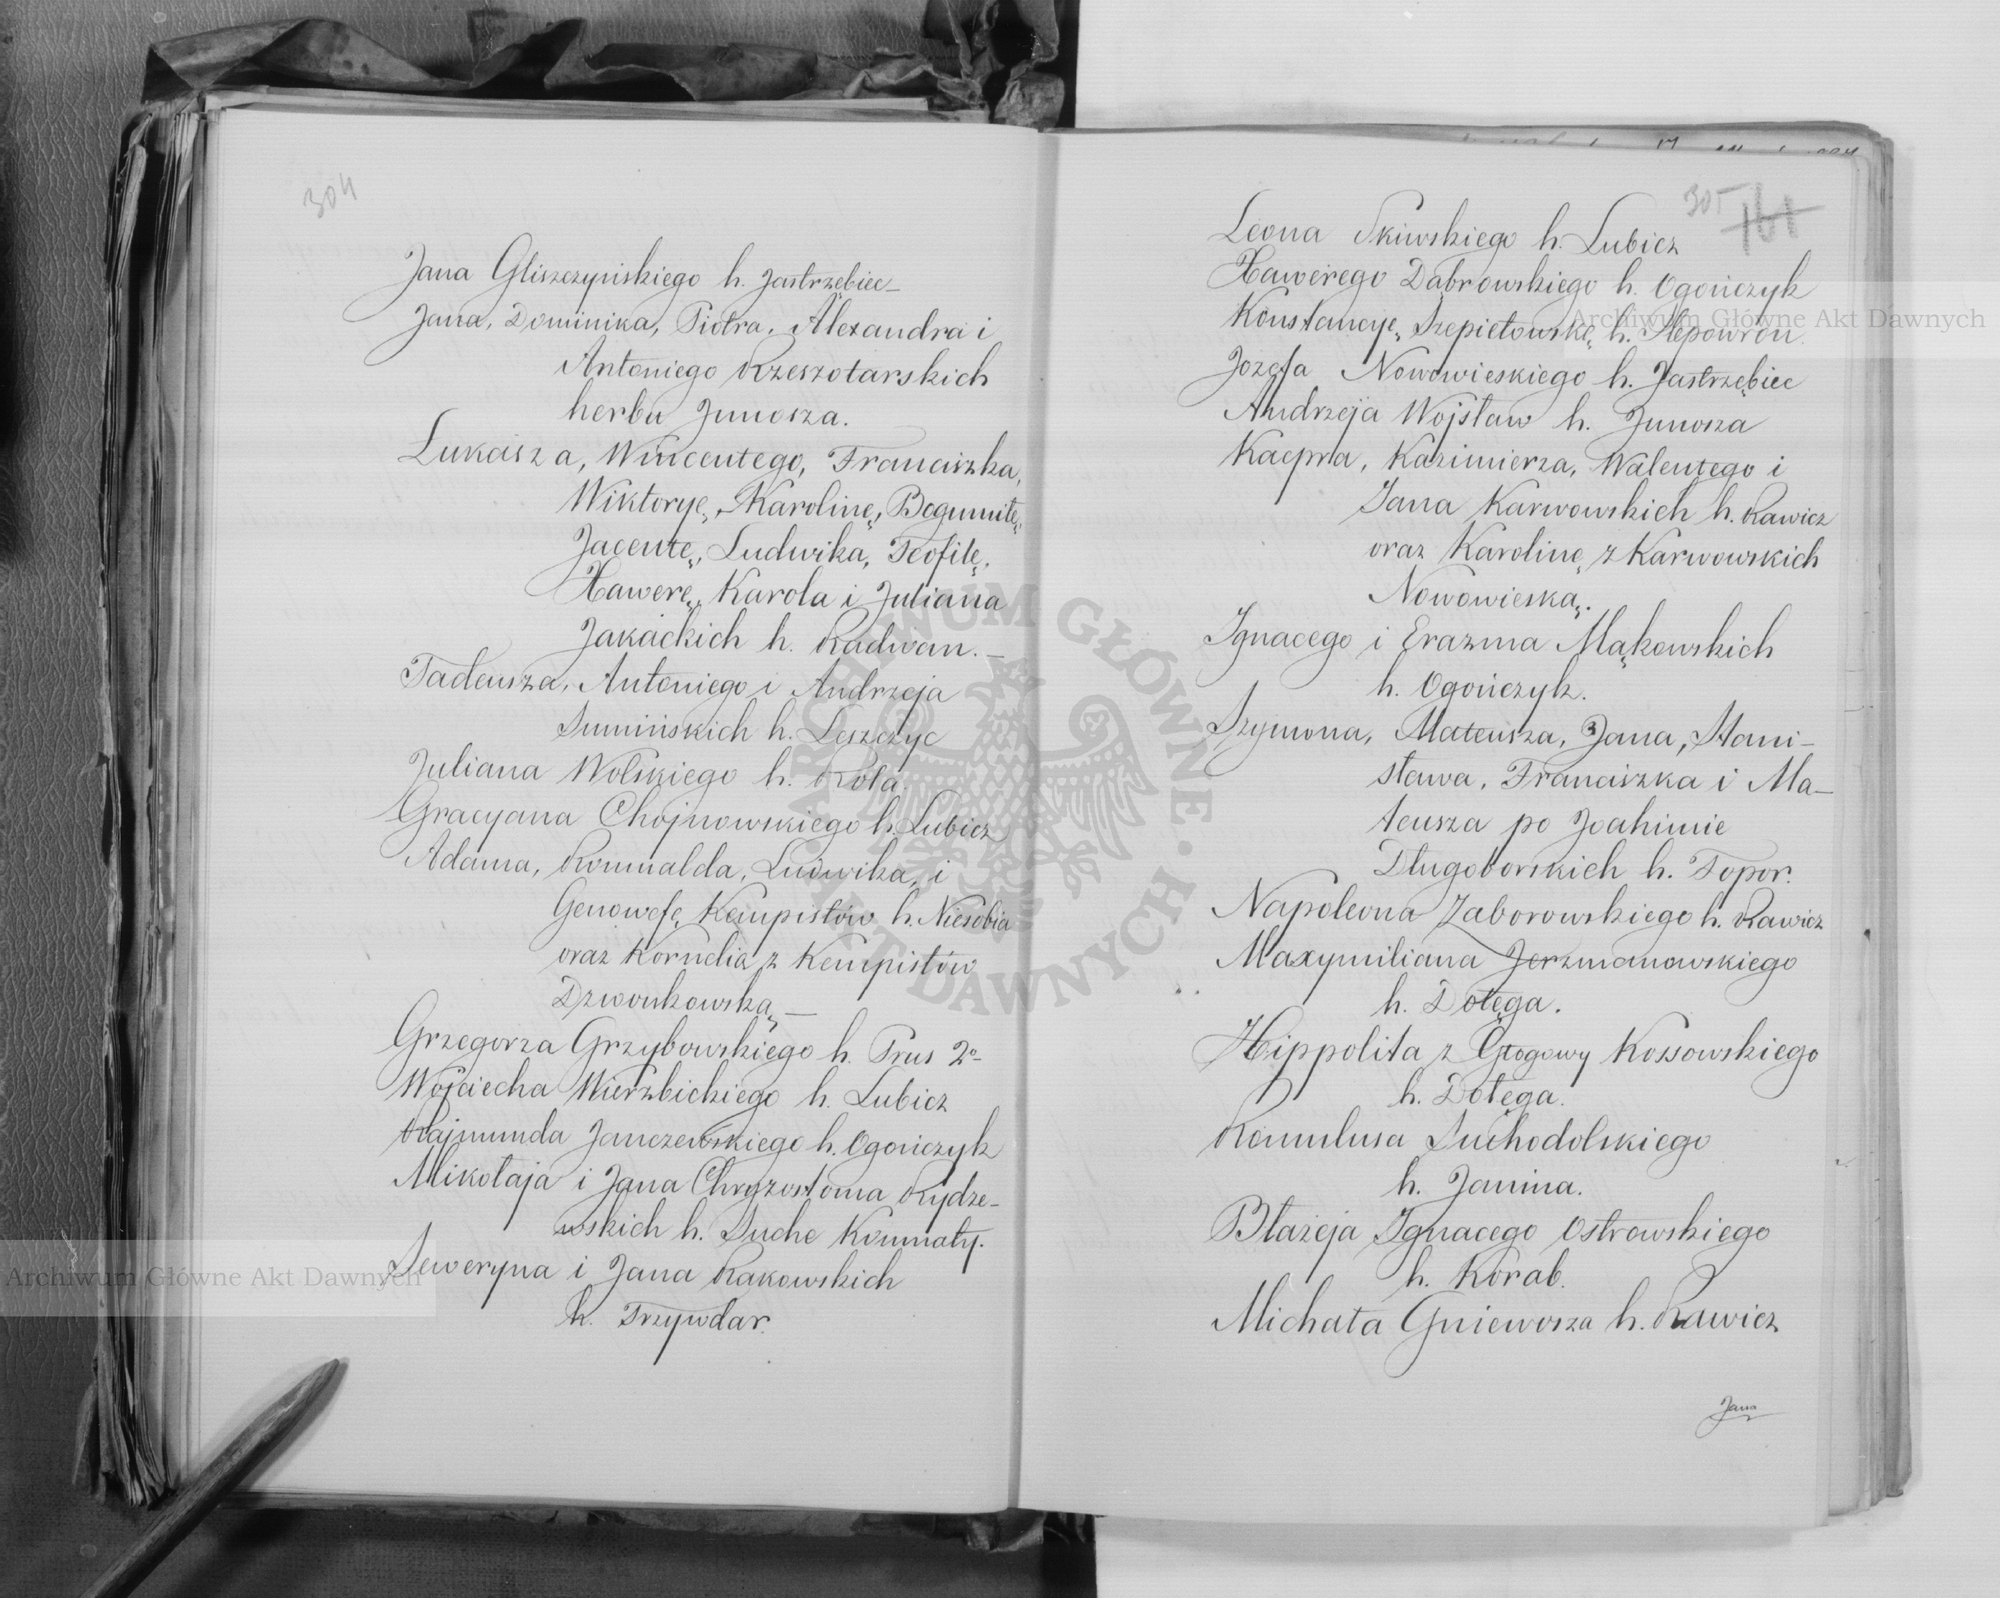 304
Jana Gliszczyńskiego h. Jastrzębiec
Jana, Dominika, Piotra, Alexandra i
Antoniego Rzeszotarskich
herbu Junosza.
Łukasza, Wincentego, Franciszka,
Wiktoryę, Karolinę, Bogumiłę,
Jacentę, Ludwika, Teofilę,
Xawerę, Karola i Juliana
Jakackich h. Radwan. —
Tadeusza, Antoniego i Andrzeja
Sumińskich h. Leszczyc
Juliana Wolskiego h. Rola.
Gracyana Chojnowskiego h. Lubicz
Adama, Romualda, Ludwika, i
Genowefę Kempistów h. Niesobia
oraz Kornelia z Kempistów
Dzwonkowską —
Grzegorza Grzybowskiego h. Prus 2o
Wojciecha Wierzbickiego h. Lubicz
Rajmunda Janczewskiego h. Ogończyk
Mikołaja i Jana Chryzostoma Rydze-
wskich h. Suche Komnaty.
Seweryna i Jana Rakowskich
h. Trzywdar.
305 161
Leona Skiwskiego h. Lubicz
Xawerego Dąbrowskiego h. Ogończyk
Konstancyę Szepietowskę h. Ślepowron.
Józefa Nowowieskiego h. Jastrzębiec
Andrzeja Wojsław h. Junosza
Kacpra, Kazimierza, Walentego i
Jana Karwowskich h. Rawicz
oraz Karolinę z Karwowskich
Nowowieską.
Ignacego i Erazma Mąkowskich
h. Ogończyk.
Szymona, Mateusza, Jana, Stani-
sława, Franciszka i Ma-
teusza po Joahimie
Długoborskich h. Topor.
Napoleona Zaborowskiego h. Rawicz
Maxymiliana Jerzmanowskiego
h. Dołęga.
Hippolita z Głogowy Kossowskiego
h. Dołęga.
Romulusa Suchodolskiego
h. Janina.
Błażeja Ignacego Ostrowskiego
h. Korab.
Michała Gniewosza h. Rawicz
Jana
Archiwum Główne Akt Dawnych
Archiwum Główne Akt Dawnych
ARCHIWUM GŁÓWNE · AKT DAWNYCH ·